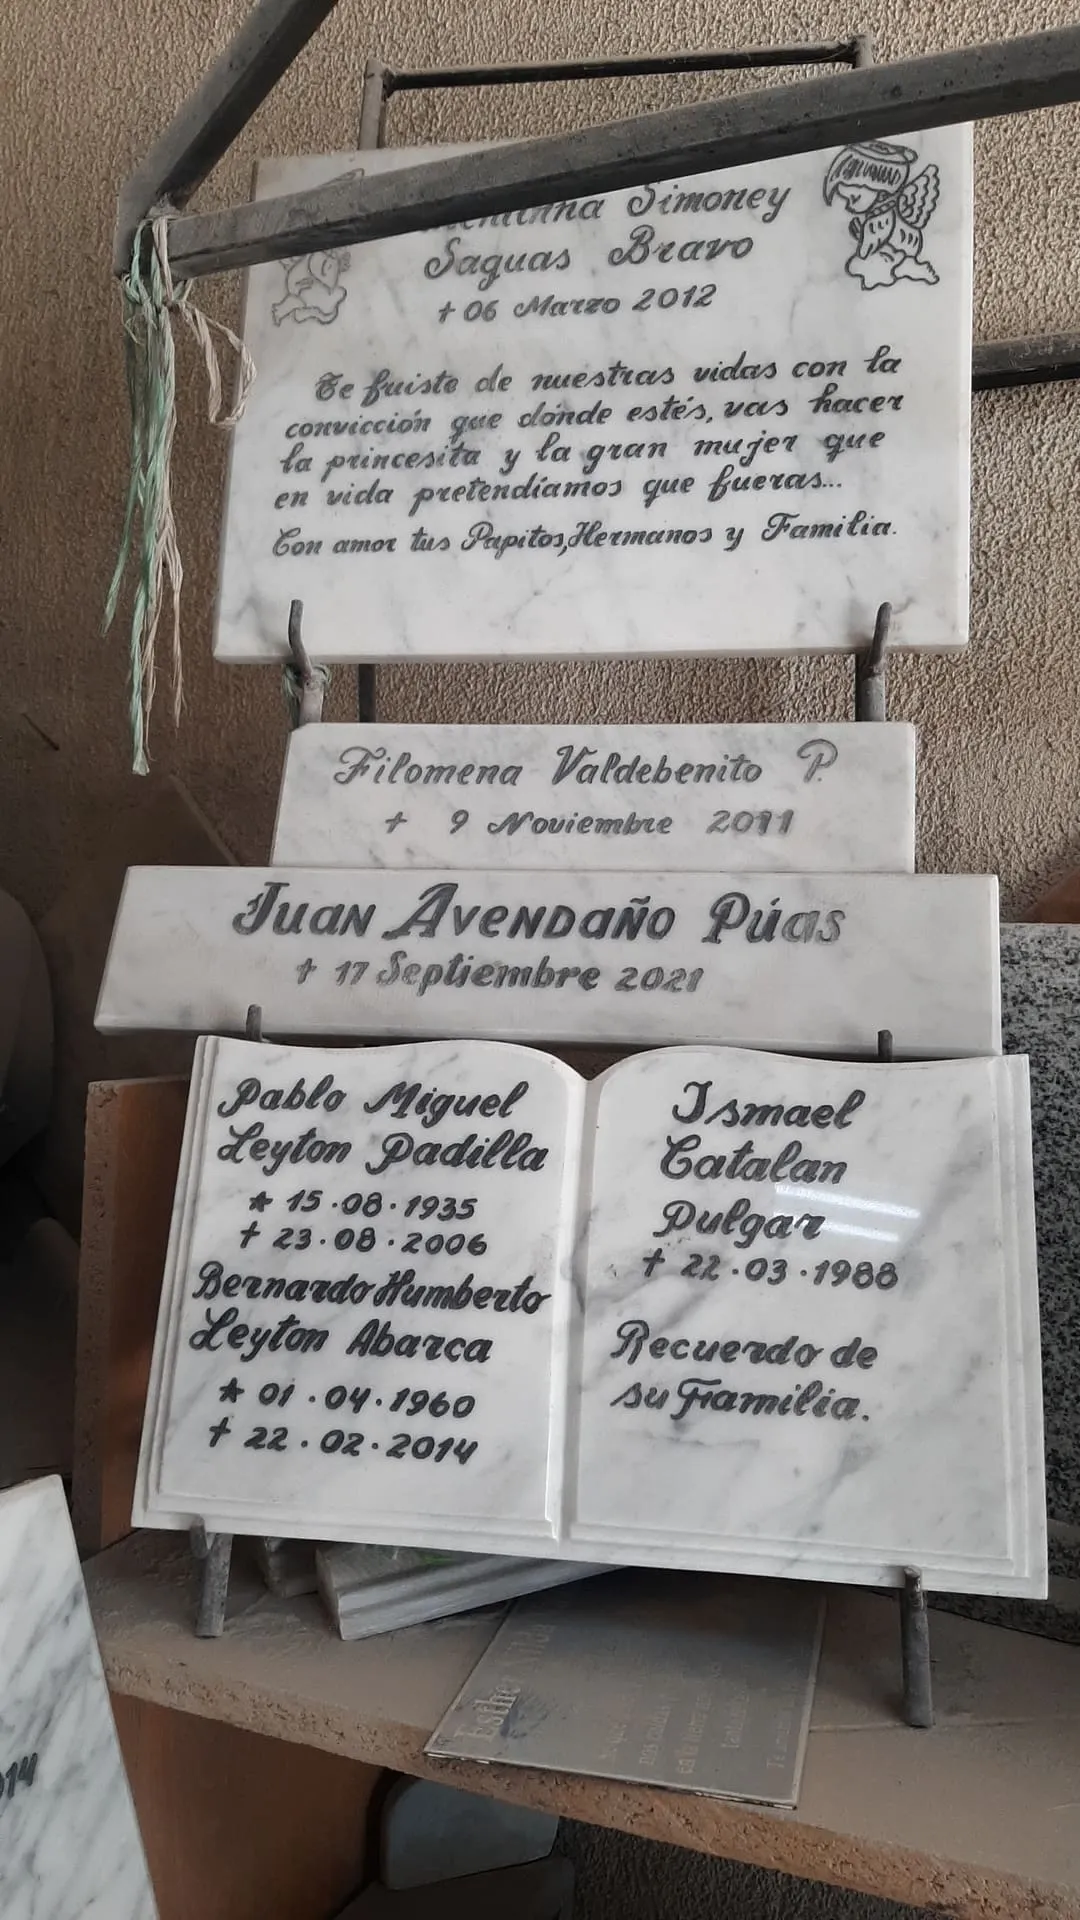 Simoney
Saguas Bravo
+ 06 Marzo 2012
Te fuiste de nuestras vidas con la
convicción que dónde estés, vas hacer
la princesita y la gran mujer que
en vida pretendíamos que fueras...
Con amor tus Papitos, Hermanos y Familia.
Filomena Valdebenito P.
+ 9 Noviembre 2011
Juan Avendaño Púas
+ 17 Septiembre 2021
Pablo Miguel
Leyton Padilla
* 15.08.1935
+ 23.08.2006
Bernardo Humberto
Leyton Abarca
* 01.04.1960
+ 22.02.2014
Ismael
Catalan
Pulgar
+ 22.03.1988
Recuerdo de
su Familia.